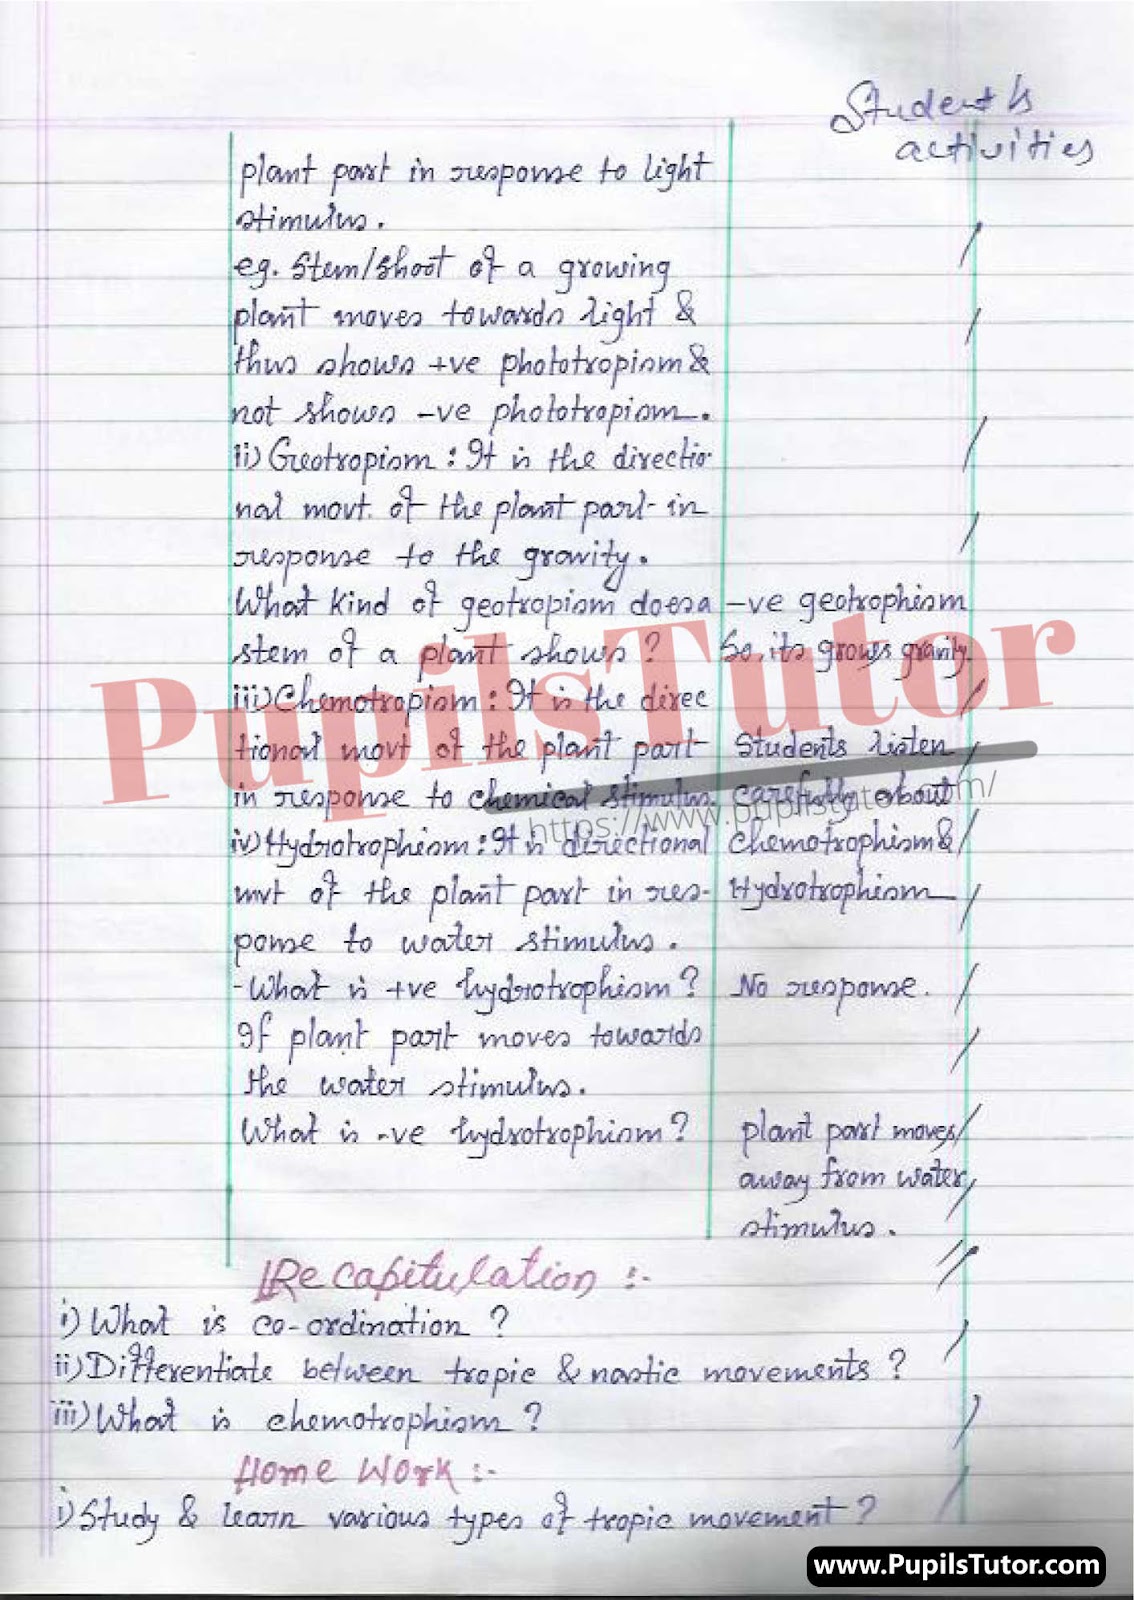 Student's
activities
plant part in response to light
stimulus.
eg. Stem/shoot of a growing
plant moves towards light &
thus shows +ve phototropism &
not shows -ve phototropism.
ii) Geotropism : It is the directio-
nal movt. of the plant part in
response to the gravity.
What kind of geotropism does a
stem of a plant shows ?
-ve geotrophism
So, its grows gravity.
iii) Chemotropism : It is the direc
tional movt of the plant part
in response to chemical stimulus.
Students listen
carefully about
chemotrophism &
Hydrotrophism
iv) Hydrotrophism : It is directional
mvt of the plant part in res-
ponse to water stimulus.
- What is +ve hydrotrophism ?
No response.
If plant part moves towards
the water stimulus.
What is -ve hydrotrophism ?
plant part moves
away from water
stimulus.
Recapitulation :-
i) What is co-ordination ?
ii) Differentiate between tropic & nastic movements ?
iii) What is chemotrophism ?
Home Work :-
i) Study & learn various types of tropic movement ?
PupilsTutor
https://www.pupilstutor.com/
www.PupilsTutor.com